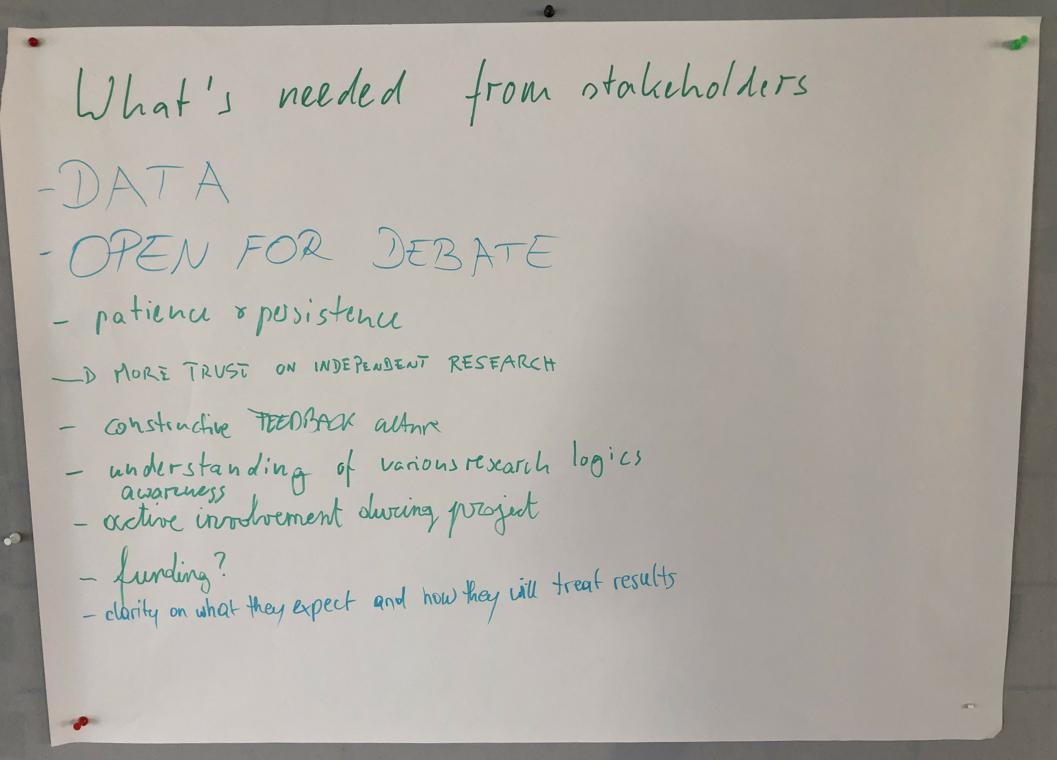 What's needed from stakeholders
- DATA
- OPEN FOR DEBATE
- patience & persistence
—D MORE TRUST ON INDEPENDENT RESEARCH
- constructive FEEDBACK culture
- understanding of various research logics
awareness
- active involvement during project
- funding?
- clarity on what they expect and how they will treat results